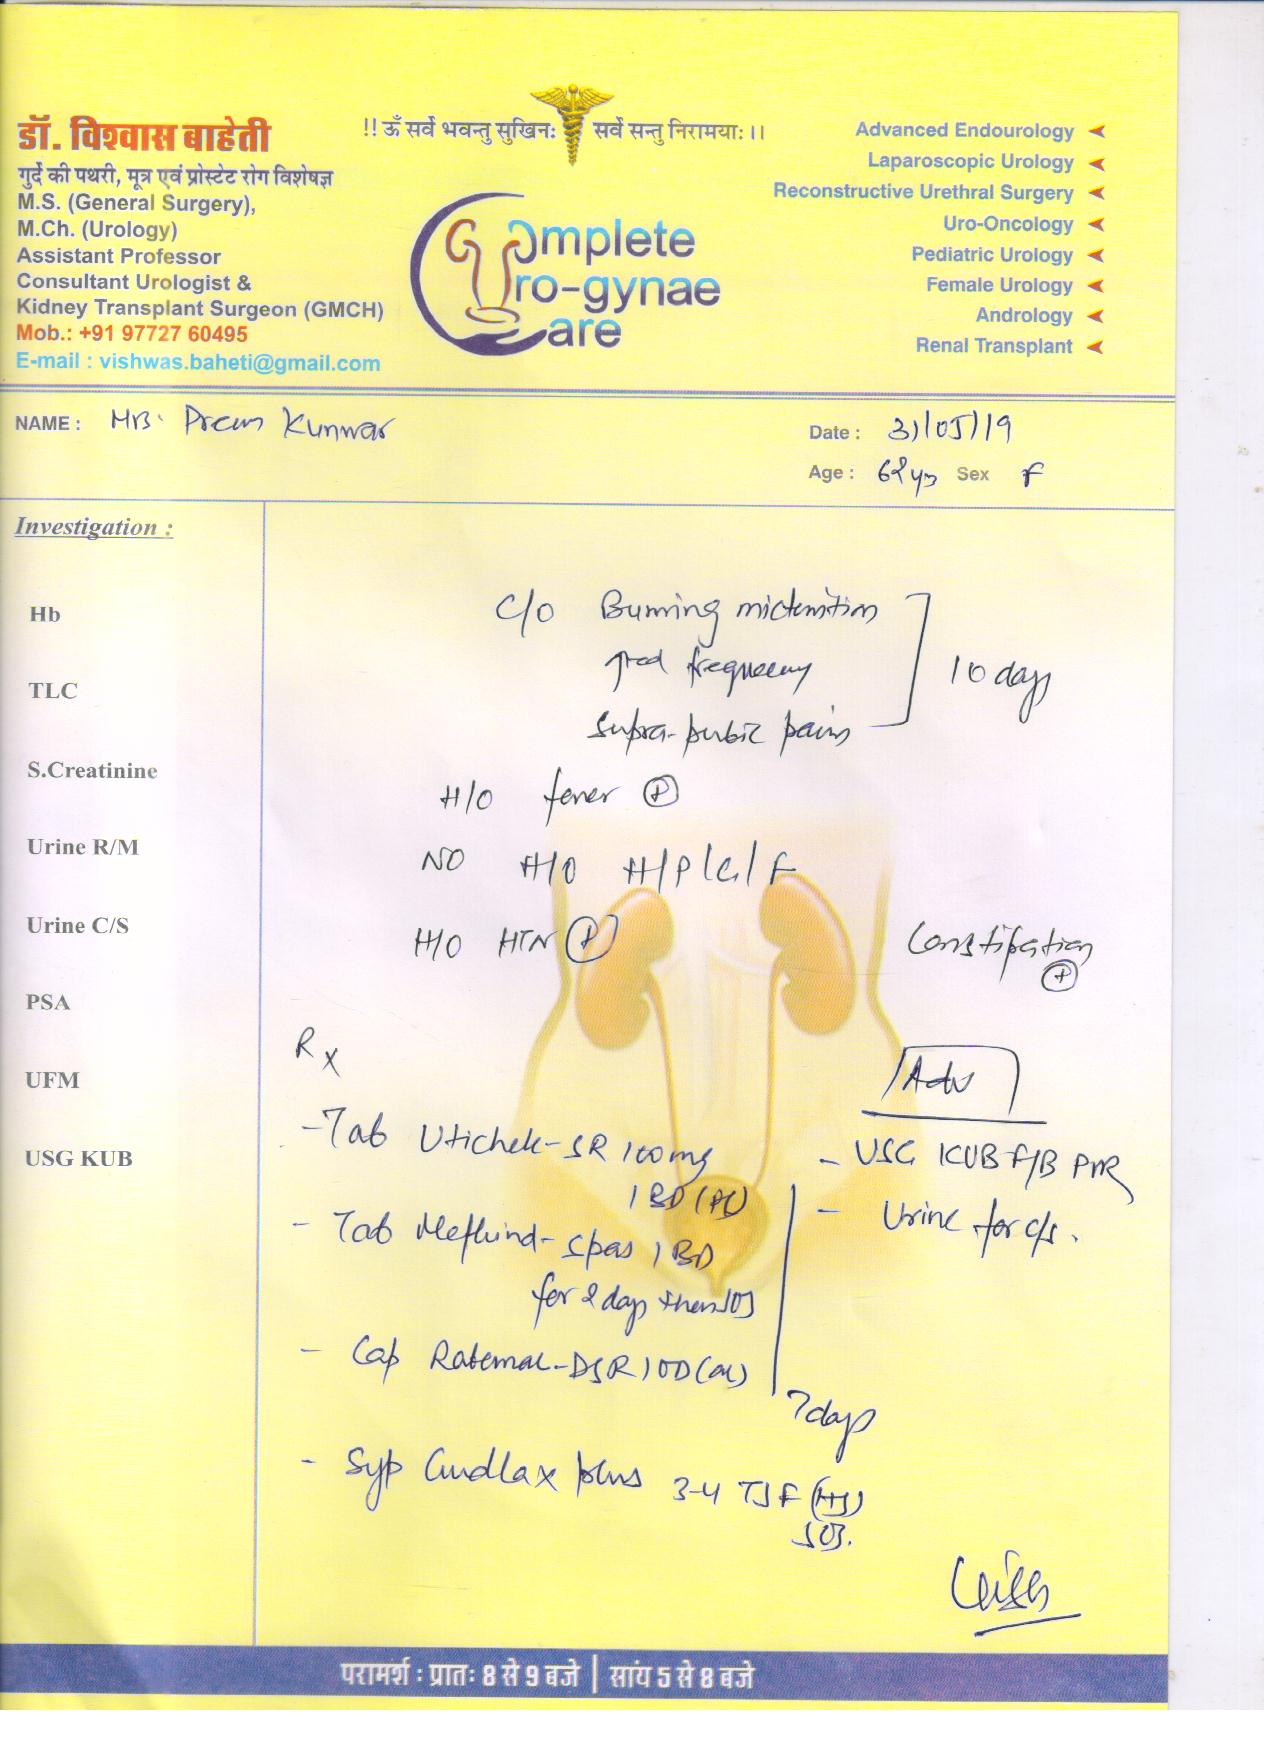 डॉ. विश्वास बाहेती
गुर्दे की पथरी, मूत्र एवं प्रोस्टेट रोग विशेषज्ञ
M.S. (General Surgery),
M.Ch. (Urology)
Assistant Professor
Consultant Urologist &
Kidney Transplant Surgeon (GMCH)
Mob.: +91 97727 60495
E-mail : vishwas.baheti@gmail.com
!! ॐ सर्वे भवन्तु सुखिनः सर्वे सन्तु निरामयाः ।।
Complete
Uro-gynae
Care
Advanced Endourology
Laparoscopic Urology
Reconstructive Urethral Surgery
Uro-Oncology
Pediatric Urology
Female Urology
Andrology
Renal Transplant
NAME : Mrs. Prem Kunwar
Date : 31/05/19
Age : 62 yrs Sex F
Investigation :
Hb
TLC
S.Creatinine
Urine R/M
Urine C/S
PSA
UFM
USG KUB
C/O Burning micturition
↑ed frequency
supra-pubic pain
10 days
H/O fever (+)
NO H/O H/P/G/F
H/O HTN (+)
Constipation (+)
Rx
- Tab Utichek-SR 100mg
1 BD (PC)
- Tab Mefkind-spas 1 BD
for 2 days then SOS
- Cap Rabemac-DSR 1 OD (AC)
7 days
- Syp Cudlax plus 3-4 TSF (HS)
SOS.
Adv
- USG KUB F/B PVR
- Urine for c/s.
परामर्श : प्रातः 8 से 9 बजे | सांय 5 से 8 बजे